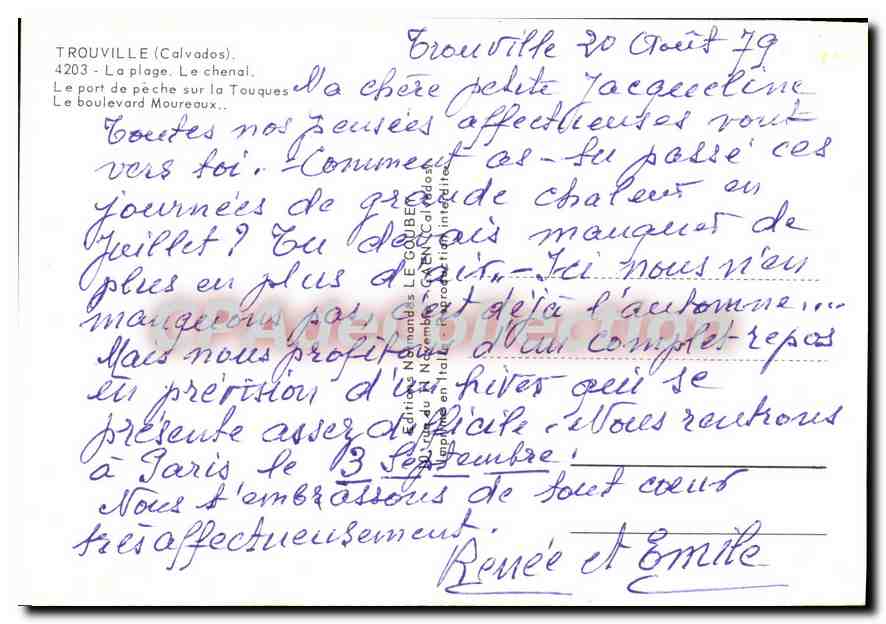 Trouville 20 Août 79
TROUVILLE (Calvados).
4203 - La plage. Le chenal.
Le port de pèche sur la Touques
Le boulevard Moureaux..
Ma chère petite Jacqueline
Toutes nos pensées affectueuses vont
vers toi. - Comment as-tu passé ces
journées de grande chaleur en
Juillet? Tu devais manquer de
plus en plus d'air.. - Ici nous n'en
manquons pas, c'est déjà l'automne....
Mais nous profitons d'un complet repos
en prévision d'un hiver qui se
présente assez difficile. Nous rentrons
à Paris le 3 Septembre.
Nous t'embrassons de tout coeur
très affectueusement.
Renée et Emile
Editions Normandes LE GOUBEY
rue du 11 Novembre - CAEN (Calvados)
Imprimé en Italie - Reproduction interdite
CPAdeCollection